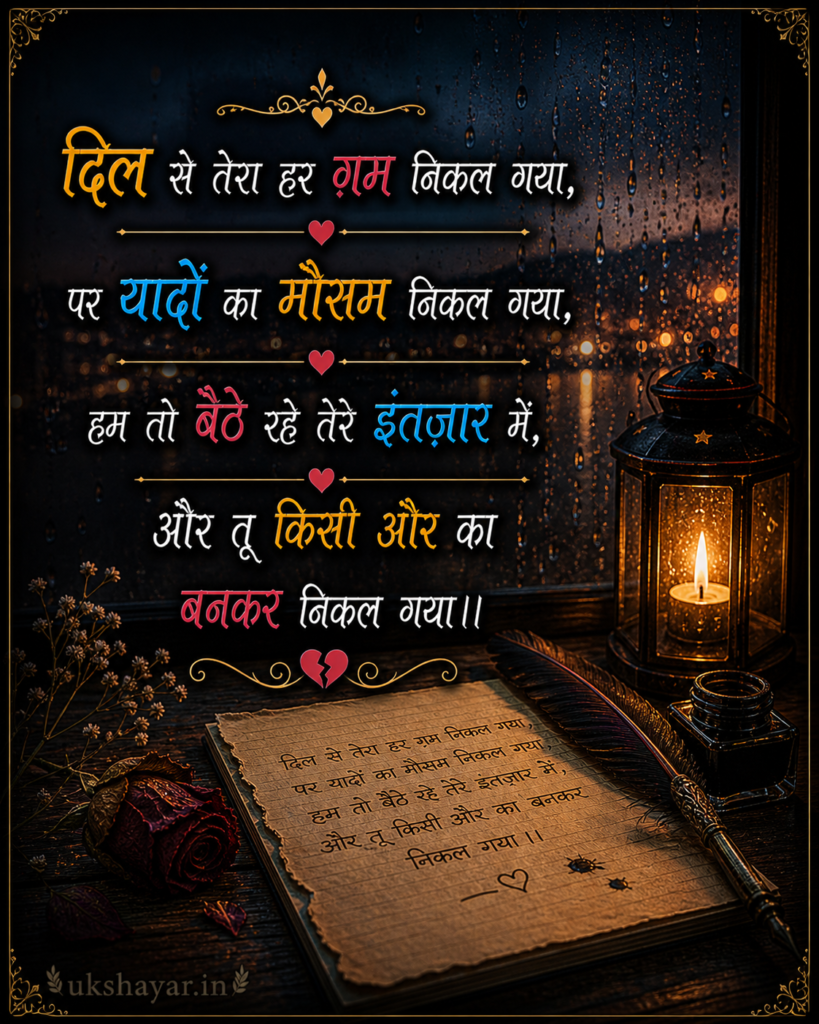 दिल से तेरा हर ग़म निकल गया,
पर यादों का मौसम निकल गया,
हम तो बैठे रहे तेरे इंतज़ार में,
और तू किसी और का
बनकर निकल गया।।
दिल से तेरा हर ग़म निकल गया,
पर यादों का मौसम निकल गया,
हम तो बैठे रहे तेरे इंतज़ार में,
और तू किसी और का बनकर
निकल गया।।
ukshayar.in